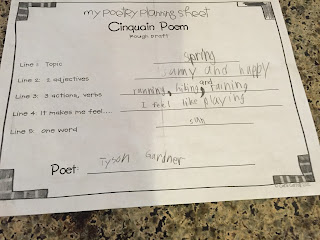 my poetry planning sheet
Cinquain Poem
Rough Draft
Line 1: Topic spring
Line 2: 2 adjectives sunny and happy
Line 3: 3 actions, verbs running, biking, and
Line 4: It makes me feel.... I feel like playing
Line 5: one word sun
Poet: Tyson Gardner